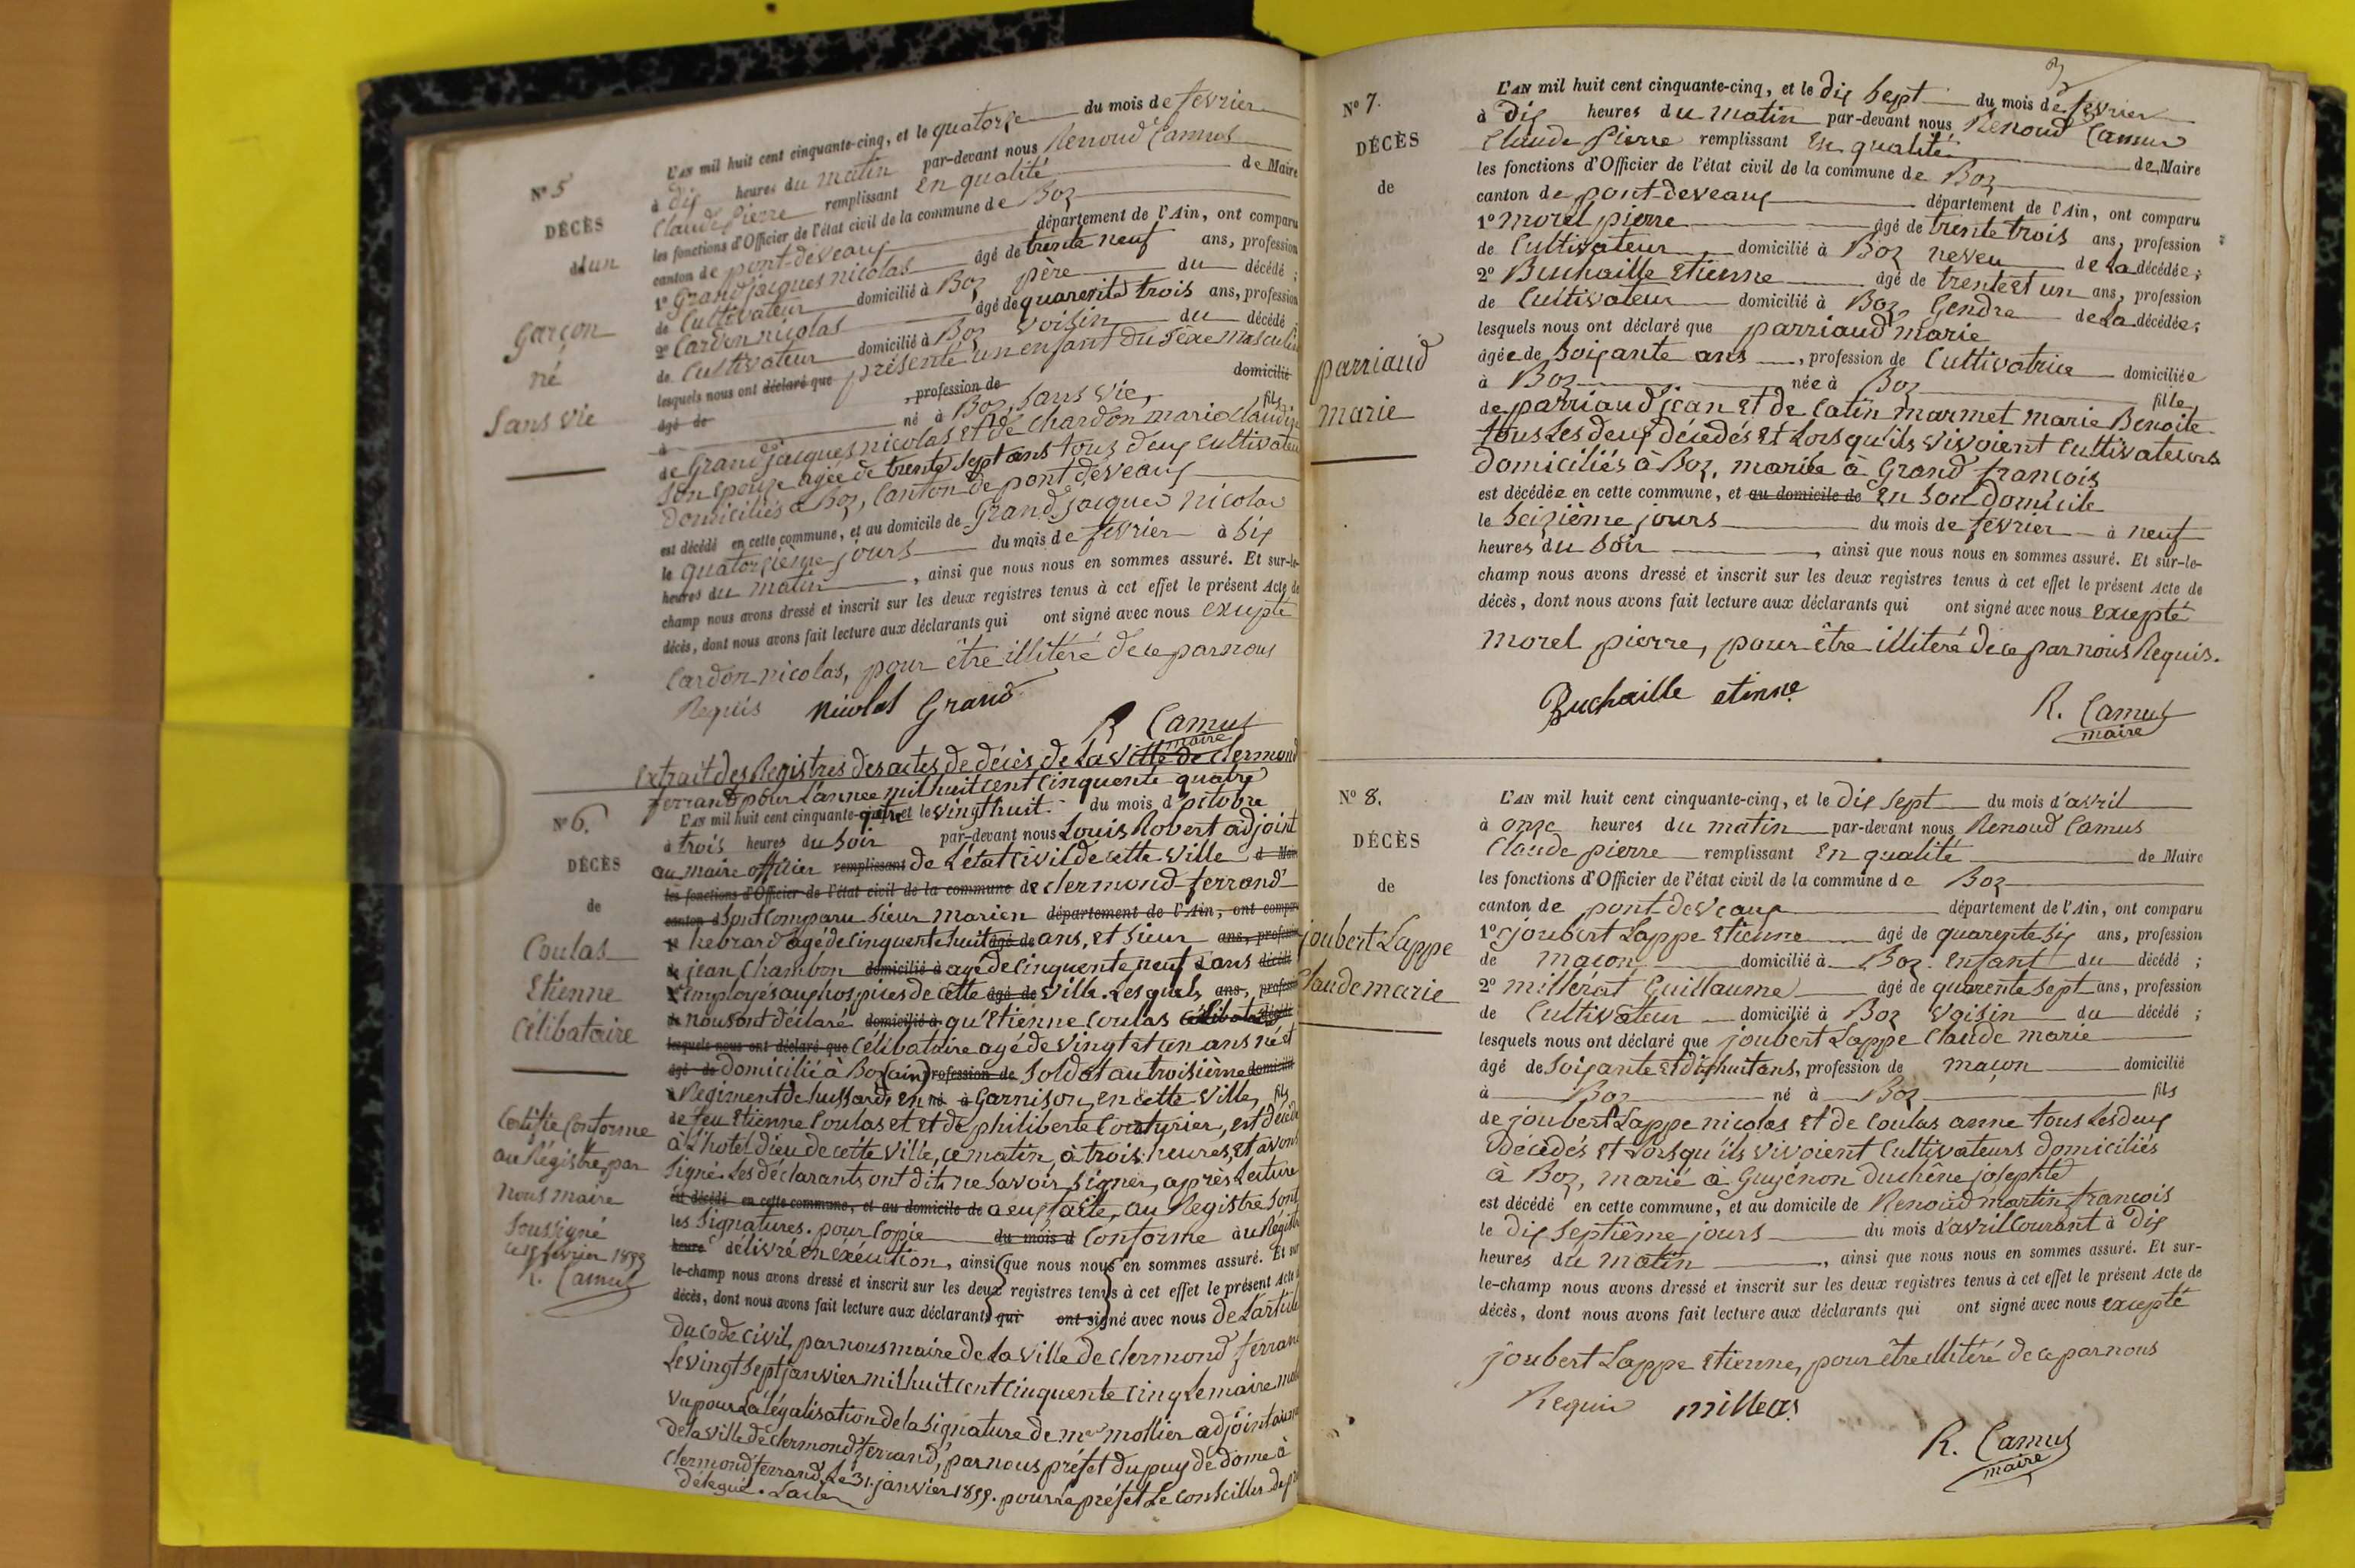 N° 5
DÉCÈS
d'un
Garçon
né
Sans vie
L'AN mil huit cent cinquante-cinq, et le quatorze du mois de fevrier
à dix heures du matin par-devant nous Renoud Camus
Claude Pierre remplissant en qualité de Maire
les fonctions d'Officier de l'état civil de la commune de Boz
canton de pont-deveaux département de l'Ain, ont comparu
1° Grand jacques nicolas âgé de trente neuf ans, profession
de Cultivateur domicilié à Boz père du décédé ;
2° Cardon nicolas âgé de quarente trois ans, profession
de Cultivateur domicilié à Boz voisin du décédé ;
lesquels nous ont déclaré que présenté un enfant du sexe masculin
âgé de , profession de domicilié
à né à Boz, sans vie, fils
de Grand jacques nicolas et de chardon marie Claudi
son epouse agée de trente sept ans tous deux Cultivateu
domiciliés à Boz, Canton de pont deveaux
est décédé en cette commune, et au domicile de Grand jacques nicolas
le quatorzième jours du mois de fevrier à six
heures du matin , ainsi que nous nous en sommes assuré. Et sur-le-
champ nous avons dressé et inscrit sur les deux registres tenus à cet effet le présent Acte de
décès, dont nous avons fait lecture aux déclarants qui ont signé avec nous excepté
Cardon nicolas, pour être illitéré de ce par nous
Requis nicolas Grand
R Camus
maire
Extrait des Registres des actes de décès de la ville de Clermond
ferrand pour l'année mil huit cent cinquente quatre
N° 6.
DÉCÈS
de
Coulas
Etienne
Célibataire
Certifié Conforme
au Régistre, par
nous maire
Soussigné
R. Camus
L'AN mil huit cent cinquante-quatre et le vingt huit du mois d'octobre
à trois heures du soir par-devant nous Louis Robert adjoint
au maire officier remplissant de l'état civil de cette ville d Mai
les fonctions d'Officier de l'état civil de la commune de clermond-ferrand
canton d sont comparu sieur marien département de l'Ain, ont compa
1° hebrard agé de cinquente huit âgé de ans, et sieur ans, profess
de jean Chambon domicilié à agé de cinquente neuf ans décédé
2° employés aux hospices de cette âgé de ville. Lesquels ans, profess
de nous ont déclaré domicilié à qu'Etienne Coulas
lesquels nous ont déclaré que Célibataire agé de vingt et un ans né et
âgé de domicilié à Boz (ain) profession de soldat au troisième domicilié
à Regiment de hussards en né à Garnison, en cette ville, fils
de feu Etienne Coulas et et de philiberte Couturier, est décédé
à l'hotel dieu de cette ville, ce matin, à trois heures, et avons
signé. Les déclarants ont dit ne savoir signer, après lecture
est décédé en cette commune, et au domicile de a eux faite, au Registre sont
les signatures. pour Copie du mois d Conforme au Regist
heure délivré en exécution, ainsi que nous nous en sommes assuré. Et sur
le-champ nous avons dressé et inscrit sur les deux registres tenus à cet effet le présent Acte
décès, dont nous avons fait lecture aux déclarants qui ont signé avec nous de l'article
du code civil, par nous maire de la ville de clermond ferrand
Le vingt sept janvier mil huit cent cinquente cinq Le maire
Vu pour la légalisation de la signature de mr mollier adjoint au
de la ville de clermond ferrand, par nous préfet du puy de dome à
Clermond ferrand, Le 31. janvier 1855. pour le préfet Le conseiller de
délégué.
N° 7.
DÉCÈS
de
parriaud
marie
L'AN mil huit cent cinquante-cinq, et le dix sept du mois de fevrier
à dix heures du matin par-devant nous Renoud Camus
Claude Pierre remplissant En qualité de Maire
les fonctions d'Officier de l'état civil de la commune de Boz
canton de pont-deveaux département de l'Ain, ont comparu
1° morel pierre âgé de trente trois ans, profession
de Cultivateur domicilié à Boz neveu de la décédée ;
2° Buchaille Etienne âgé de trente et un ans, profession
de Cultivateur domicilié à Boz, Gendre de la décédée ;
lesquels nous ont déclaré que parriaud marie
âgée de soixante ans , profession de Cultivatrice domiciliée
à Boz née à Boz fille
de parriaud jean et de Catin marmet marie Benoite
tous les deux décédés et lorsqu'ils vivoient Cultivateurs
domiciliés à Boz, mariée à Grand françois
est décédée en cette commune, et au domicile de en son domicile
le seizième jours du mois de fevrier à neuf
heures du soir , ainsi que nous nous en sommes assuré. Et sur-le-
champ nous avons dressé et inscrit sur les deux registres tenus à cet effet le présent Acte de
décès, dont nous avons fait lecture aux déclarants qui ont signé avec nous excepté
morel pierre, pour être illitéré de ce par nous Requis.
Buchaille etinne
R. Camus
maire
N° 8.
DÉCÈS
de
joubert Lappe
Claude marie
L'AN mil huit cent cinquante-cinq, et le dix sept du mois d'avril
à onze heures du matin par-devant nous Renoud Camus
Claude pierre remplissant En qualité de Maire
les fonctions d'Officier de l'état civil de la commune de Boz
canton de pont-deveaux département de l'Ain, ont comparu
1° joubert Lappe Etienne âgé de quarente six ans, profession
de maçon domicilié à Boz. Enfant du décédé ;
2° millérat Guillaume âgé de quarente sept ans, profession
de Cultivateur domicilié à Boz Voisin du décédé ;
lesquels nous ont déclaré que joubert Lappe Claude marie
âgé de soixante et dix huit ans, profession de maçon domicilié
à Boz né à Boz fils
de joubert Lappe nicolas et de Coulas anne tous les deux
décédés et lorsqu'ils vivoient Cultivateurs domiciliés
à Boz, marié à Guyénon duchêne josephte
est décédé en cette commune, et au domicile de Renoud martin françois
le dix septième jours du mois d'avril courant à dix
heures du matin , ainsi que nous nous en sommes assuré. Et sur-
le-champ nous avons dressé et inscrit sur les deux registres tenus à cet effet le présent Acte de
décès, dont nous avons fait lecture aux déclarants qui ont signé avec nous excepté
joubert Lappe Etienne, pour être illitéré de ce par nous
Requis
R. Camus
maire